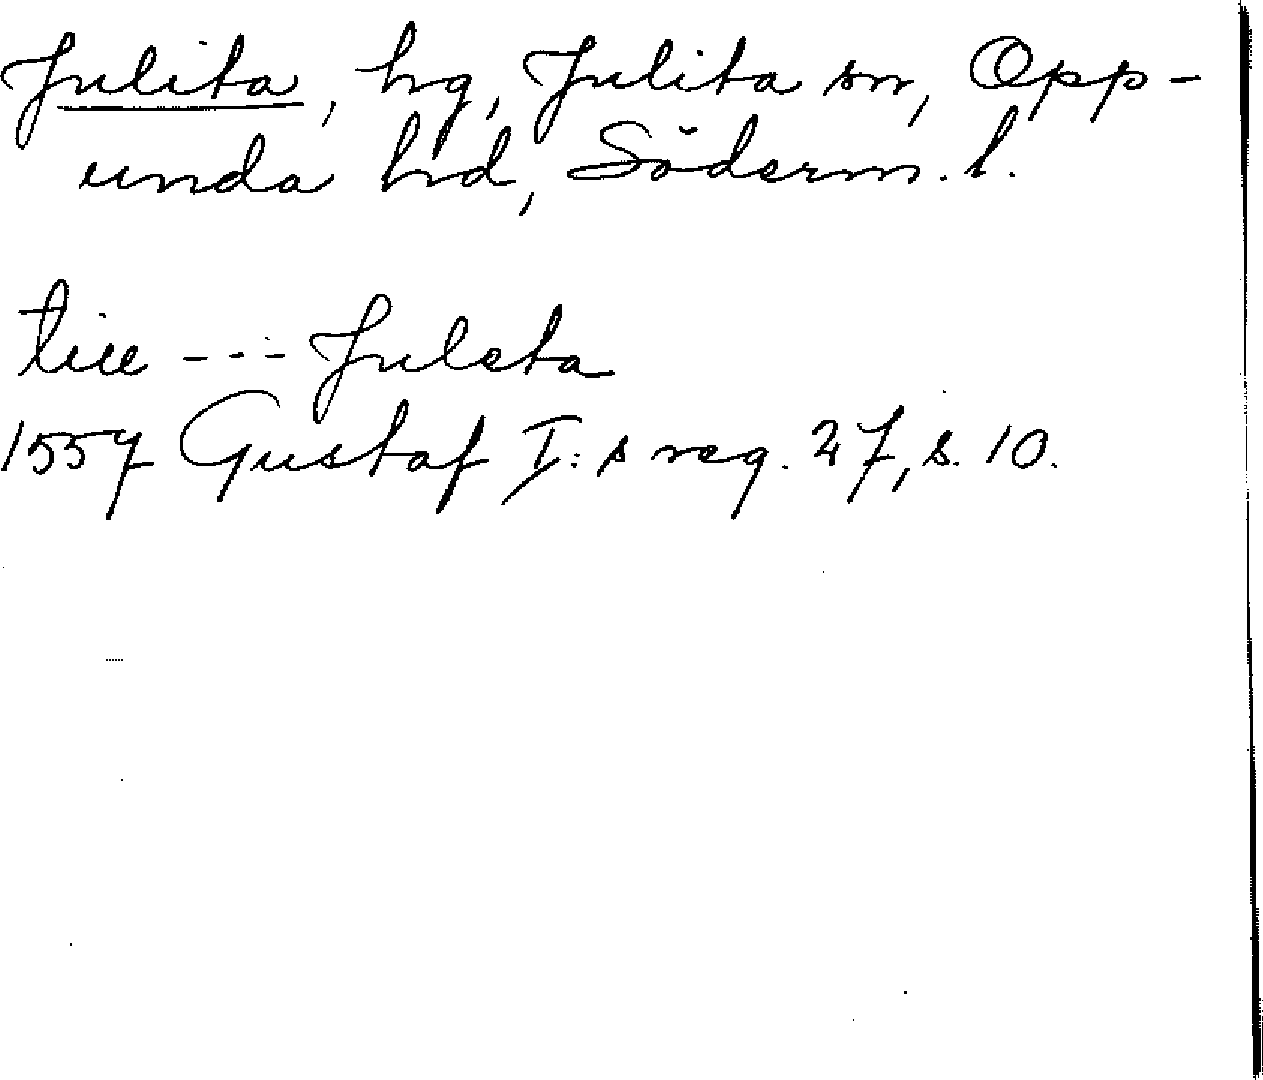 Julita, hg, Julita sn, Opp-
unda hd, Söderm. l.
till --- Juleta
1557 Gustaf I:s reg. 27, s. 10.